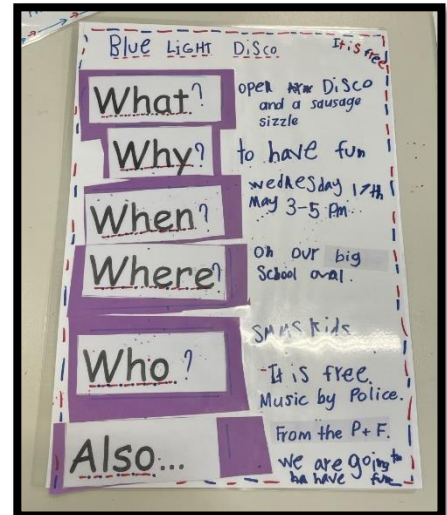 Blue LiGHT DiSco
It is free
What?
open DiSco
and a sausage
sizzle
Why?
to have fun
When?
wednesday 17th
May 3-5 Pm.
Where?
on our big
School oval.
Who?
SMMS Kids
It is free.
Music by Police.
Also...
From the P+F.
we are going to
ha have fun